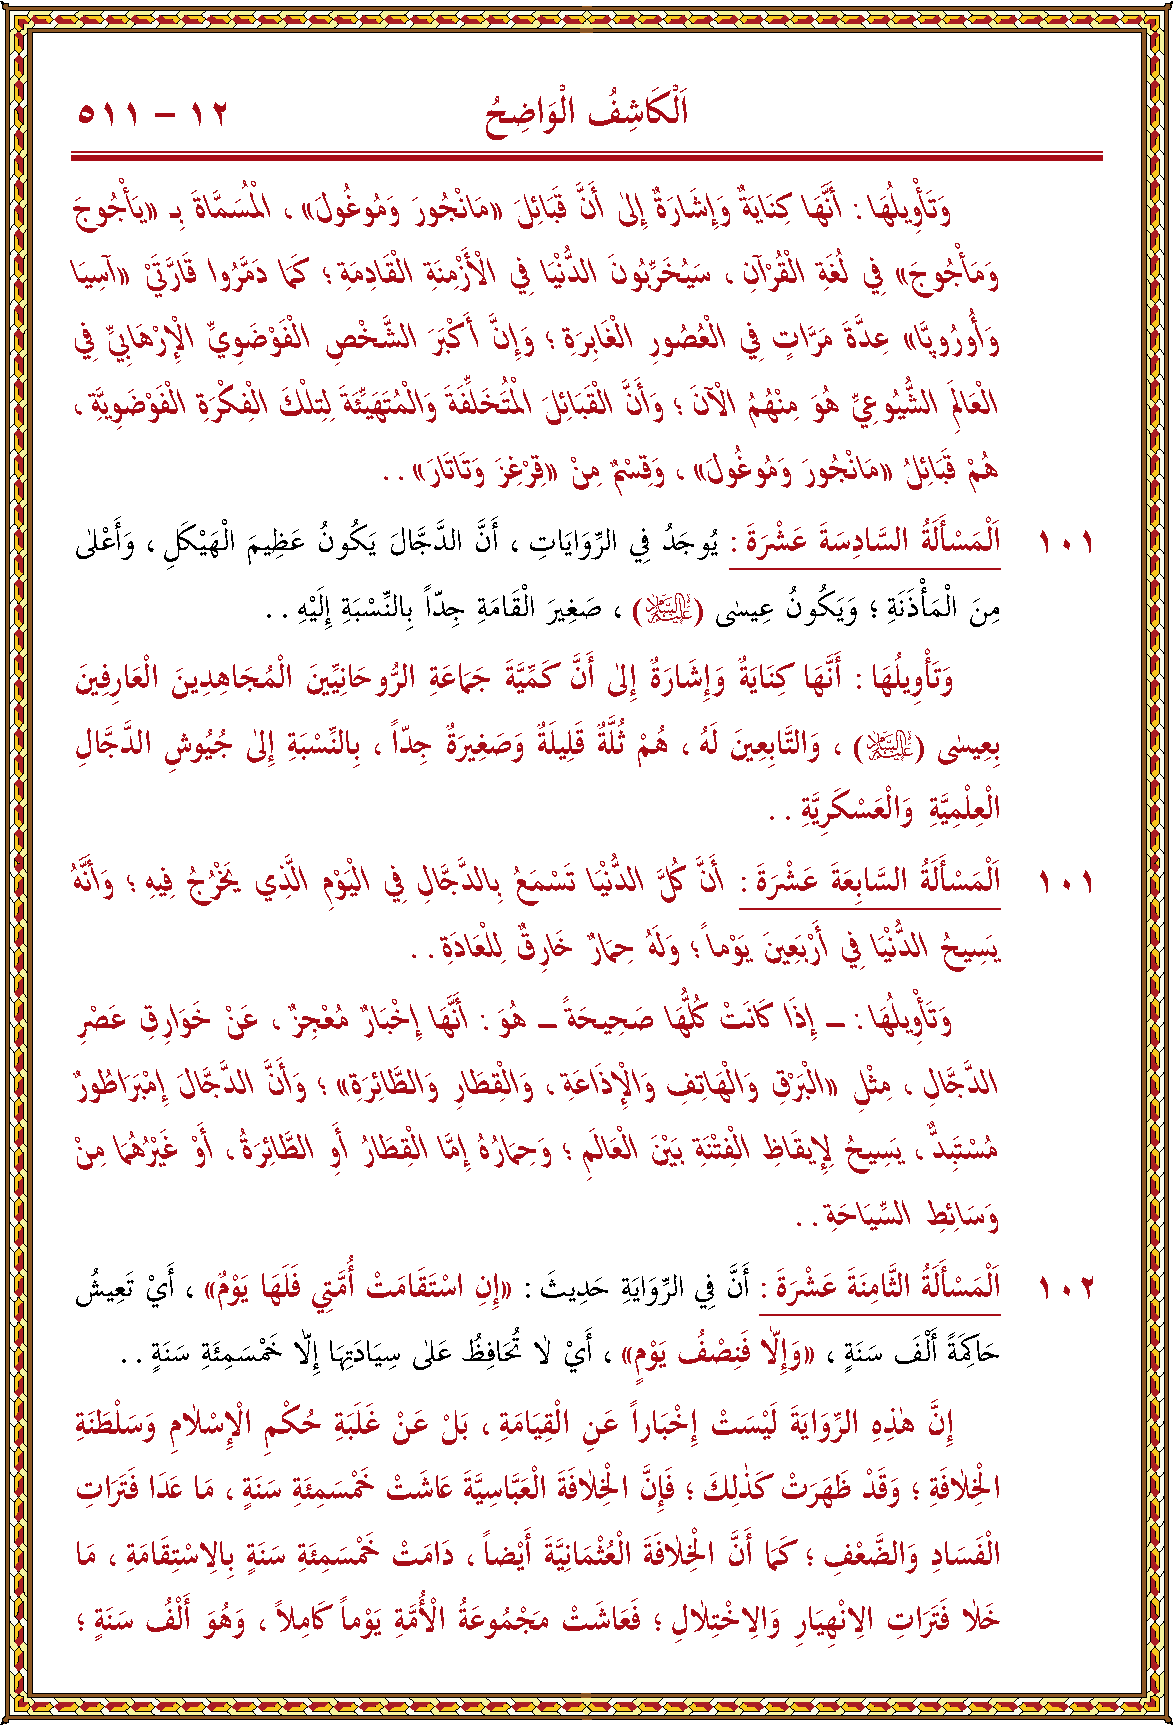 اَلْكَاشِفُ الْوَاضِحُ ١٢ – ٥١١
وَتَأْوِيلُهَا : أَنَّهَا كِنَايَةٌ وَإِشَارَةٌ إِلىٰ أَنَّ قَبَائِلَ «مَانْجُورَ وَمُوغُولَ» ، الْمُسَمَّاةَ بِـ «يَأْجُوجَ
وَمَأْجُوجَ» فِي لُغَةِ الْقُرْآنِ ، سَيُخَرِّبُونَ الدُّنْيَا فِي الْأَزْمِنَةِ الْقَادِمَةِ ؛ كَمَا دَمَّرُوا قَارَّتَيْ «آسِيَا
وَأُورُوپَّا» عِدَّةَ مَرَّاتٍ فِي الْعُصُورِ الْغَابِرَةِ ؛ وَإِنَّ أَكْبَرَ الشَّخْصِ الْفَوْضَوِيِّ الْإِرْهَابِيِّ فِي
الْعَالَمِ الشُّيُوعِيِّ هُوَ مِنْهُمُ الْآنَ ؛ وَأَنَّ الْقَبَائِلَ الْمُتَخَلِّفَةَ وَالْمُتَهَيِّئَةَ لِتِلْكَ الْفِكْرَةِ الْفَوْضَوِيَّةِ ،
هُمْ قَبَائِلُ «مَانْجُورَ وَمُوغُولَ» ، وَقِسْمٌ مِنْ «قِرْغِزَ وَتَاتَارَ» . .
١٠١ اَلْمَسْأَلَةُ السَّادِسَةَ عَشْرَةَ : يُوجَدُ فِي الرِّوَايَاتِ ، أَنَّ الدَّجَّالَ يَكُونُ عَظِيمَ الْهَيْكَلِ ، وَأَعْلىٰ
مِنَ الْمَأْذَنَةِ ؛ وَيَكُونُ عِيسٰى (عَلَيْهِ السَّلَامُ) ، صَغِيرَ الْقَامَةِ جِدّاً بِالنِّسْبَةِ إِلَيْهِ . .
وَتَأْوِيلُهَا : أَنَّهَا كِنَايَةٌ وَإِشَارَةٌ إِلىٰ أَنَّ كَمِّيَّةَ جَمَاعَةِ الرُّوحَانِيِّينَ الْمُجَاهِدِينَ الْعَارِفِينَ
بِعِيسٰى (عَلَيْهِ السَّلَامُ) ، وَالتَّابِعِينَ لَهُ ، هُمْ ثُلَّةٌ قَلِيلَةٌ وَصَغِيرَةٌ جِدّاً ، بِالنِّسْبَةِ إِلىٰ جُيُوشِ الدَّجَّالِ
الْعِلْمِيَّةِ وَالْعَسْكَرِيَّةِ . .
١٠١ اَلْمَسْأَلَةُ السَّابِعَةَ عَشْرَةَ : أَنَّ كُلَّ الدُّنْيَا تَسْمَعُ بِالدَّجَّالِ فِي الْيَوْمِ الَّذِي يَخْرُجُ فِيهِ ؛ وَأَنَّهُ
يَسِيحُ الدُّنْيَا فِي أَرْبَعِينَ يَوْماً ؛ وَلَهُ حِمَارٌ خَارِقٌ لِلْعَادَةِ . .
وَتَأْوِيلُهَا : – إِذَا كَانَتْ كُلُّهَا صَحِيحَةً – هُوَ : أَنَّهَا إِخْبَارٌ مُعْجِزٌ ، عَنْ خَوَارِقِ عَصْرِ
الدَّجَّالِ ، مِثْلِ «الْبَرْقِ وَالْهَاتِفِ وَالْإِذَاعَةِ ، وَالْقِطَارِ وَالطَّائِرَةِ» ؛ وَأَنَّ الدَّجَّالَ إِمْبَرَاطُورٌ
مُسْتَبِدٌّ ، يَسِيحُ لِإِيقَاظِ الْفِتْنَةِ بَيْنَ الْعَالَمِ ؛ وَحِمَارُهُ إِمَّا الْقِطَارُ أَوِ الطَّائِرَةُ ، أَوْ غَيْرُهُمَا مِنْ
وَسَائِطِ السِّيَاحَةِ . .
١٠٢ اَلْمَسْأَلَةُ الثَّامِنَةَ عَشْرَةَ : أَنَّ فِي الرِّوَايَةِ حَدِيثَ : «إِنِ اسْتَقَامَتْ أُمَّتِي فَلَهَا يَوْمٌ» ، أَيْ تَعِيشُ
حَاكِمَةً أَلْفَ سَنَةٍ ، «وَإِلَّا فَنِصْفُ يَوْمٍ» ، أَيْ لَا تُحَافِظُ عَلىٰ سِيَادَتِهَا إِلَّا خَمْسَمِئَةِ سَنَةٍ . .
إِنَّ هٰذِهِ الرِّوَايَةَ لَيْسَتْ إِخْبَاراً عَنِ الْقِيَامَةِ ، بَلْ عَنْ غَلَبَةِ حُكْمِ الْإِسْلَامِ وَسَلْطَنَةِ
الْخِلَافَةِ ؛ وَقَدْ ظَهَرَتْ كَذٰلِكَ ؛ فَإِنَّ الْخِلَافَةَ الْعَبَّاسِيَّةَ عَاشَتْ خَمْسَمِئَةِ سَنَةٍ ، مَا عَدَا فَتَرَاتِ
الْفَسَادِ وَالضَّعْفِ ؛ كَمَا أَنَّ الْخِلَافَةَ الْعُثْمَانِيَّةَ أَيْضاً ، دَامَتْ خَمْسَمِئَةِ سَنَةٍ بِالِاسْتِقَامَةِ ، مَا
خَلَا فَتَرَاتِ الِانْهِيَارِ وَالِاخْتِلَالِ ؛ فَعَاشَتْ مَجْمُوعَةُ الْأُمَّةِ يَوْماً كَامِلاً ، وَهُوَ أَلْفُ سَنَةٍ ؛